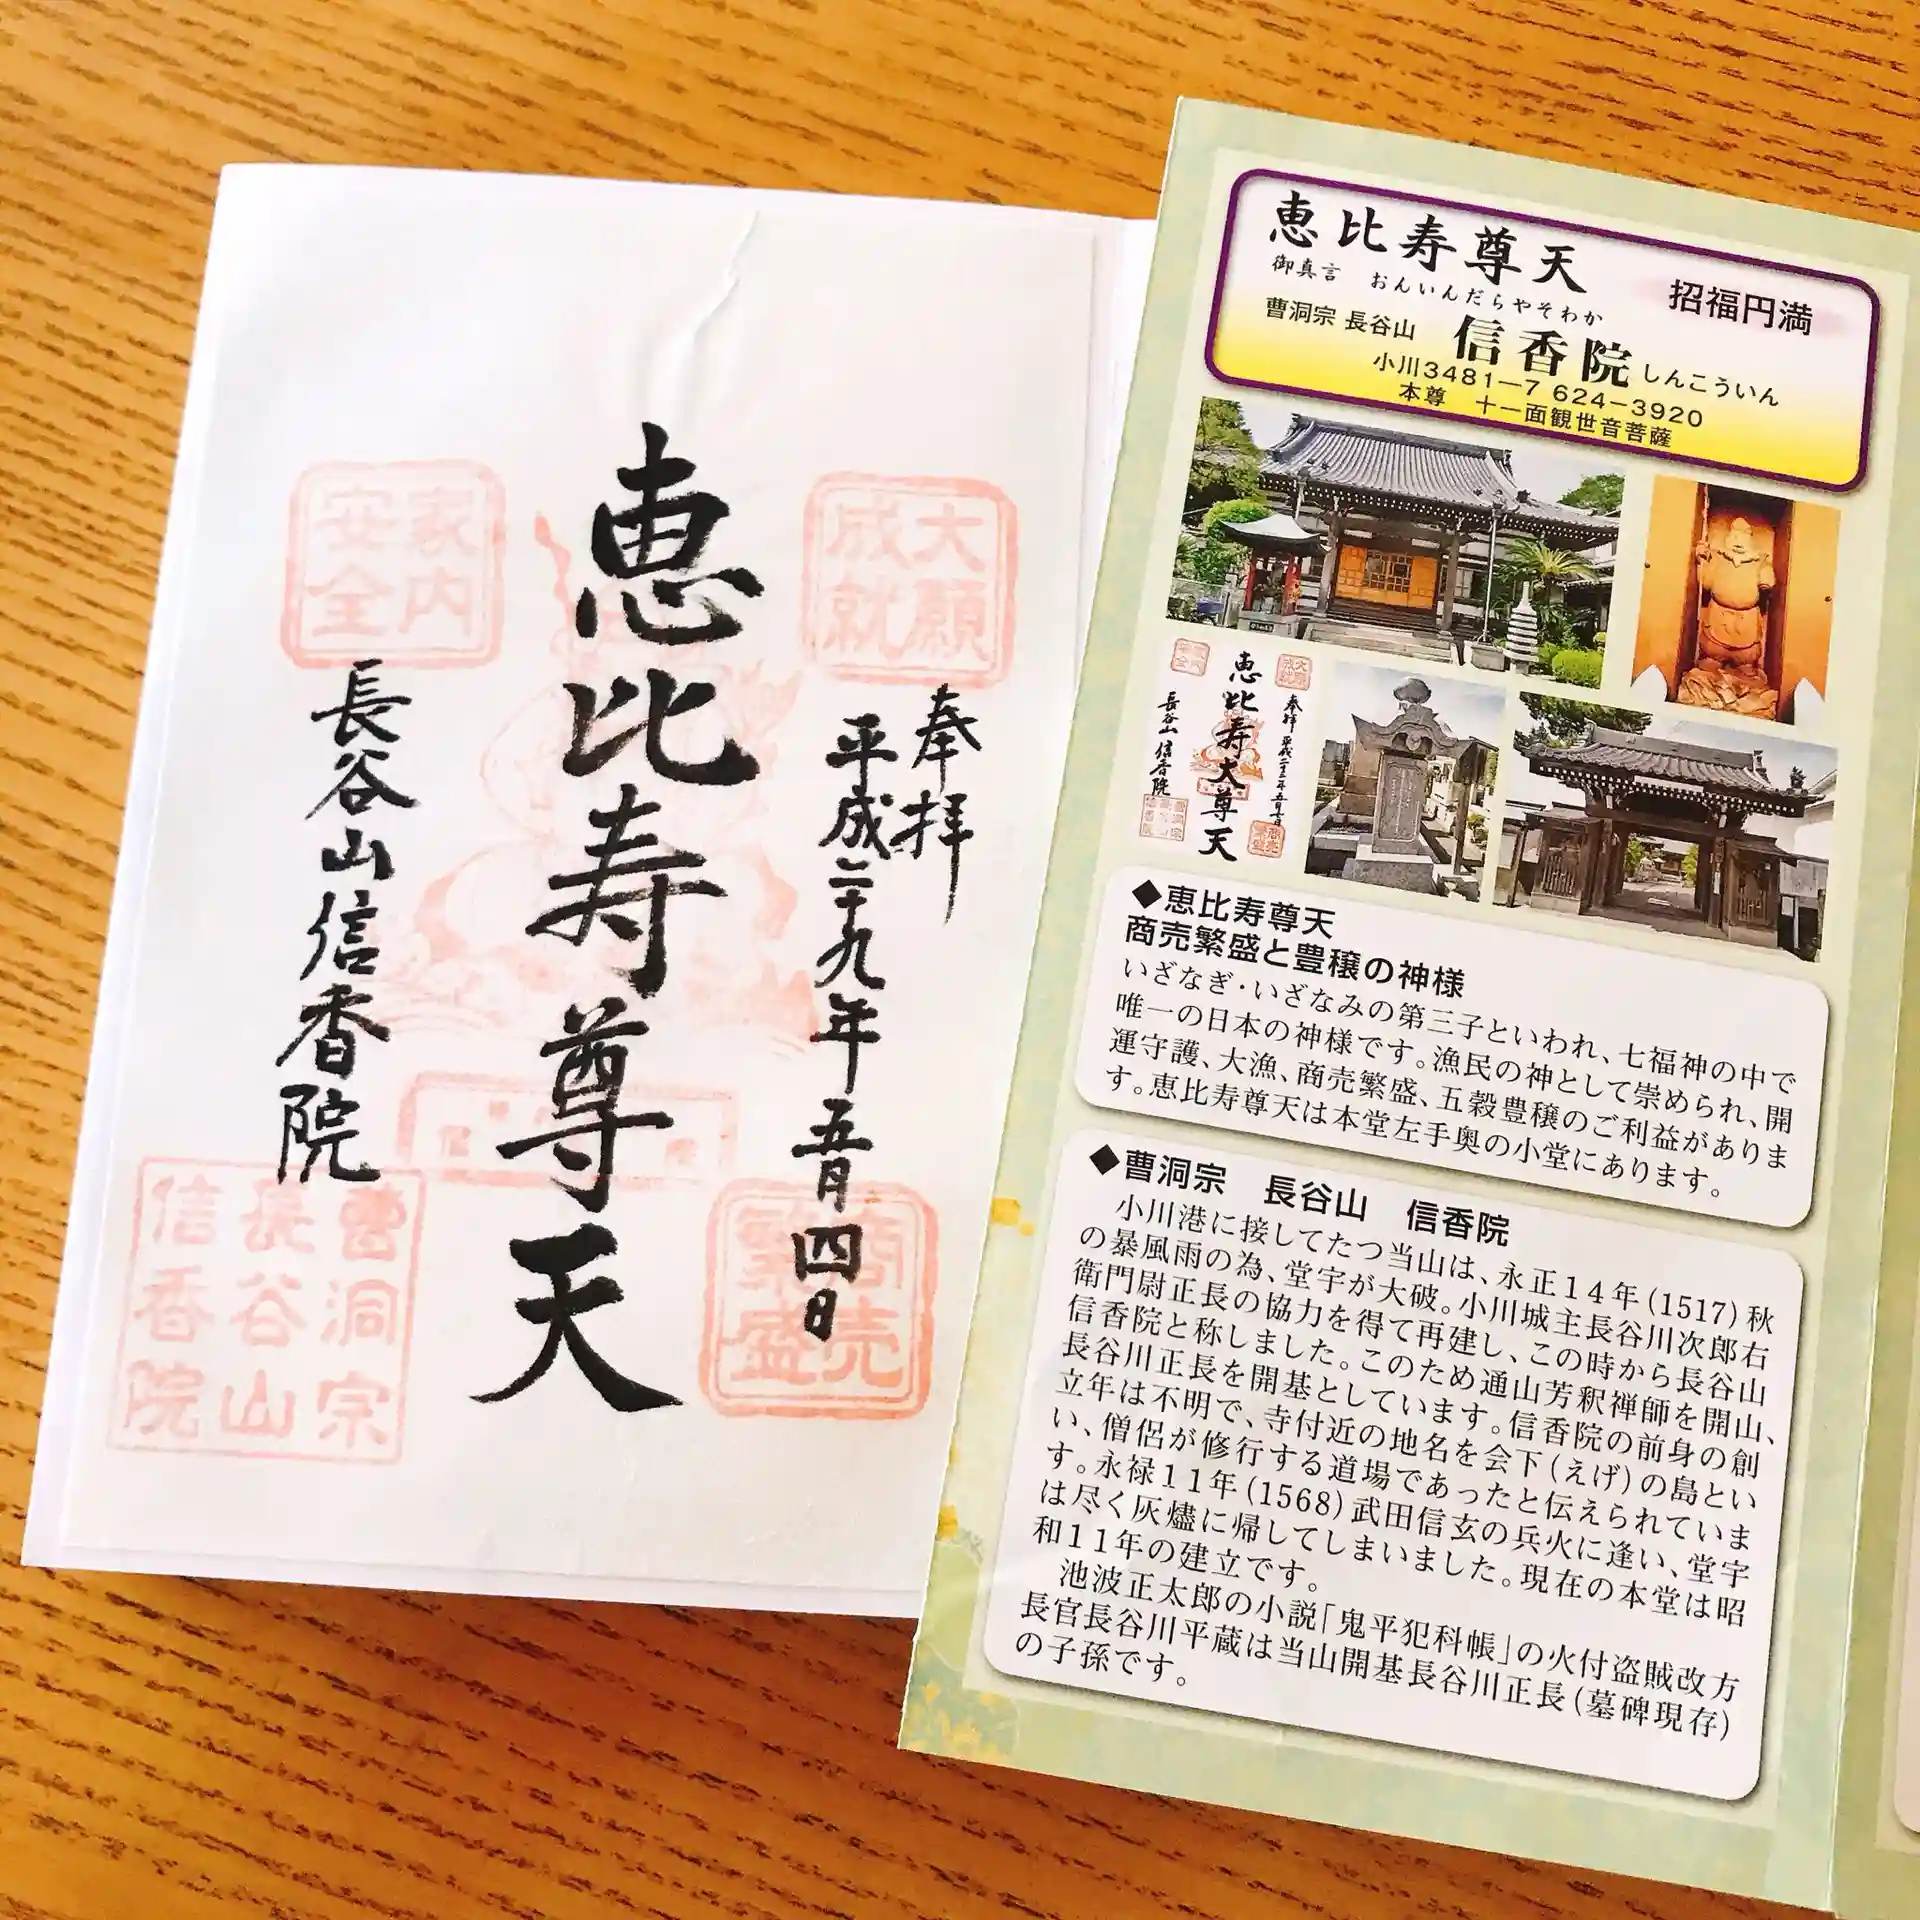 奉拝
平成二十九年五月四日
恵比寿尊天
長谷山信香院
大願
成就
家内
安全
商売
繁盛
曹洞宗
長谷山
信香院
恵比寿尊天
招福円満
御真言 おんいんだらやそわか
曹洞宗 長谷山 信香院 しんこういん
小川3481−7 624−3920
本尊 十一面観世音菩薩
大願
成就
奉拝
恵比寿大尊天
家内
安全
長谷山 信香院
商売
繁盛
曹洞宗
長谷山
信香院
◆恵比寿尊天
商売繁盛と豊穣の神様
いざなぎ・いざなみの第三子といわれ、七福神の中で
唯一の日本の神様です。漁民の神として崇められ、開
運守護、大漁、商売繁盛、五穀豊穣のご利益がありま
す。恵比寿尊天は本堂左手奥の小堂にあります。
◆曹洞宗 長谷山 信香院
小川港に接してたつ当山は、永正14年(1517)秋
の暴風雨の為、堂宇が大破。小川城主長谷川次郎右
衛門尉正長の協力を得て再建し、この時から長谷山
信香院と称しました。このため通山芳釈禅師を開山、
長谷川正長を開基としています。信香院の前身の創
立年は不明で、寺付近の地名を会下(えげ)の島とい
い、僧侶が修行する道場であったと伝えられていま
す。永禄11年(1568)武田信玄の兵火に逢い、堂宇
は尽く灰燼に帰してしまいました。現在の本堂は昭
和11年の建立です。
池波正太郎の小説「鬼平犯科帳」の火付盗賊改方
長官長谷川平蔵は当山開基長谷川正長(墓碑現存)
の子孫です。